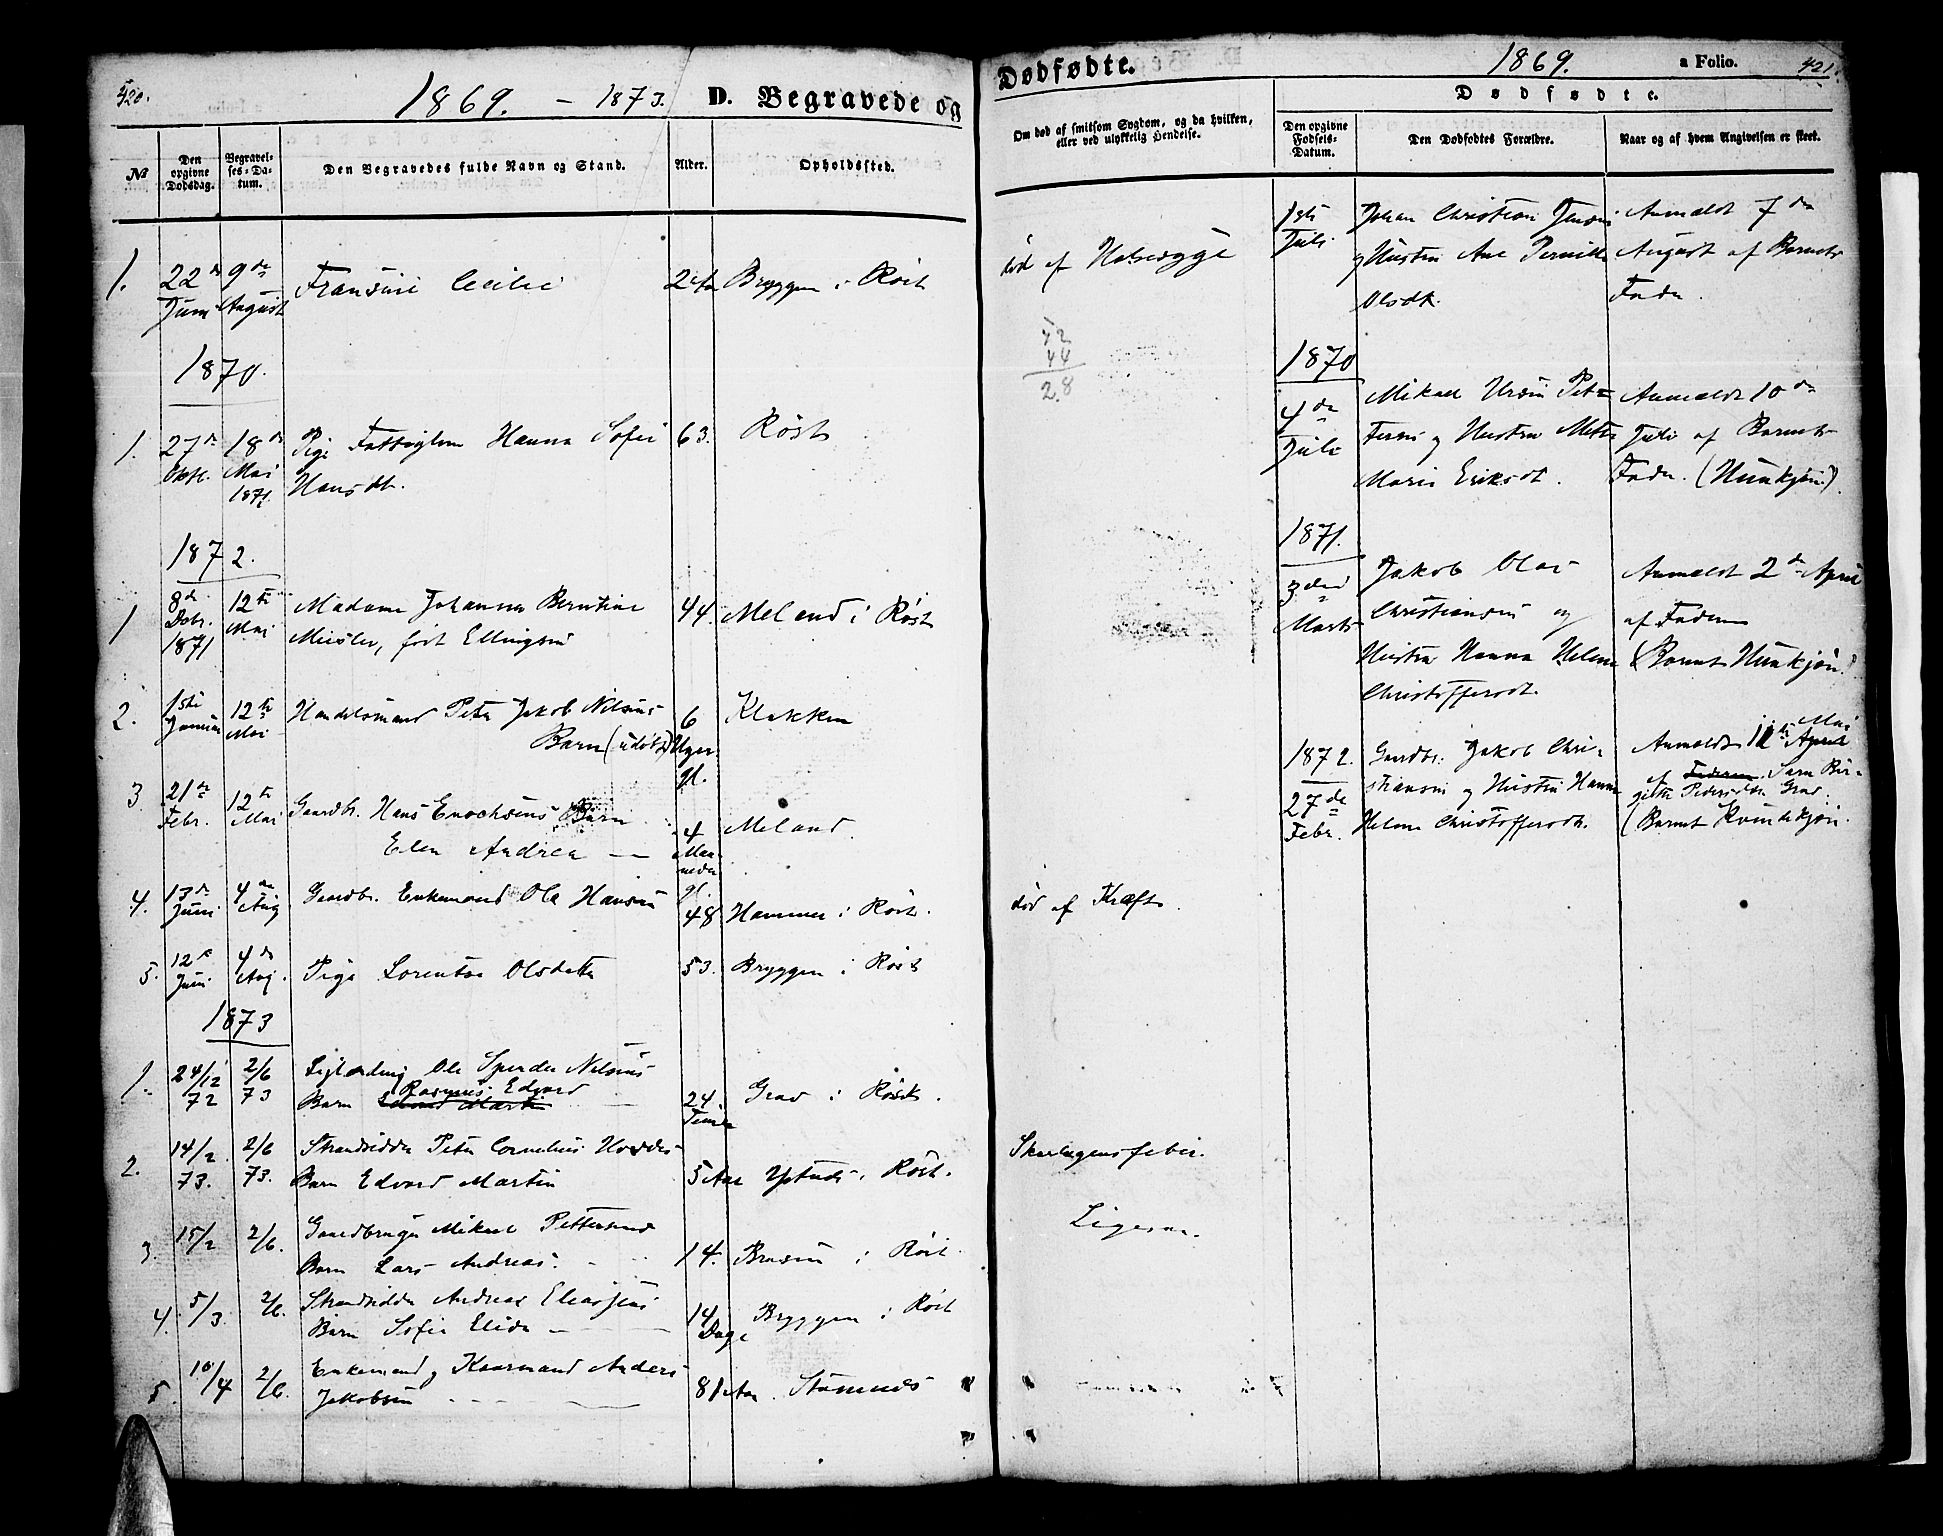 420.
1869. - 1873.
D. Begravede og
№
Den opgivne Dødsdag.
Begravelses-Datum.
Den Begravedes fulde Navn og Stand.
Alder.
Opholdssted.
1.
22de Juni
9de August
Fransine Cecilie
2 Aar
Bryggen i Röst
1870.
1.
27de Oktbr.
18de Mai 1871.
Pige Fattiglem Hanna Sofie
Hansdtr.
63.
Röst
1872.
1
8de Dcbr. 1871
12te Mai
Madame Johanna Berntine
født Ellingsen
44.
Meland i Röst
2.
1ste Januar
12te Mai
Handelsmand Peter Jakob Nilsens
Barn (udöbt)
6 Uger gl.
Klakken
3.
21de Febr.
12te Mai
Gaardbr. Hans Enochsens Barn
Elen Andrea —
4 Maaneder gl.
Meland.
4.
13de Juni
4de Aug
Gaardbr. Enkemand Ole Hansen
48.
Hammer i Röst.
5.
12te Juni
4de Aug.
Pige Lorentse Olsdatter
53.
Bryggen i Röst
1873
1.
24/12 72
2/6 73
Ole Nilsens
Rasmus Edvard
Barn
24 Timer
Grav i Röst.
2.
14/2 73.
2/6 73.
Strandsidder Peter Cornelius
Barn Edvard Martin
5 Aar
Röst.
3
15/2
2/6.
Gaardbruger Mikael Pettersens
Barn Lars Andreas.
14.
i Röst.
4.
5/3.
2/6.
Strandsidder Andreas Eliassens
Barn Sofie Elida —
14 Dage
Bryggen i Röst
5.
10/4
2/6.
Enkemand og Kaarmand Anders
Jakobsen
81 Aar.
Stavnes
Dødfødte.
1869.
a Folio.
421.
Om død af smitsom Sygdom, og da hvilken,
eller ved ulykkelig Hendelse.
Dødfødte.
Den opgivne Fødsels-Datum.
Den Dødfødtes Forældre.
Naar og af hvem Angivelsen er skeet.
död af Halssyge
1ste Juli.
Johan Christian Jensen
og Hustru Ane Pernille
Olsdtr.
Anmeldt 7de
August af Barnets
Fader.
42
44
28
1870
4de Juli
Mikael Ursin Peter-
og Hustru Mette
Marie Eriksdtr.
Anmeldt 10de
Juli af Barnets
Fader. (Hunkjön).
1871.
3die Marts
Jakob Olai
Christiansen og
Hustru Hanna Helene
Christoffersdtr.
Anmeldt 2den April
af Faderen
(Barnet Hunkjön)
1872.
27de Febr.
Gaardbr. Jakob Chri-
stiansen og Hustru Hanna
Helene Christoffersdtr.
Mai
Anmeldt 12te April
af Faderen. Sara Bir-
gitte Pedersdtr. Grav.
(Barnet Kvindekjön.
död af Kræft.
Skarlagensfeber.
Ligesaa.